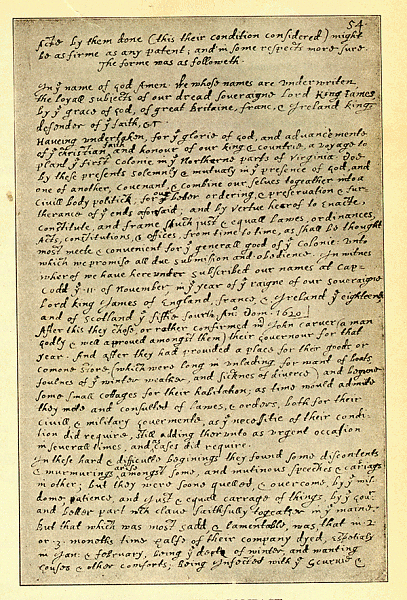 54.
Acte by them done (this their condition considered) might
be as firme as any patent; and in some respects more sure.
The forme was as followeth.
In yᵉ name of God Amen. We whose names are underwriten,
the loyall subjects of our dread soveraigne Lord King James
by yᵉ grace of God, of great Britaine, franc, & Ireland king,
defender of yᵉ faith, &c
Haveing undertaken, for yᵉ glorie of God, and advancemente
of yᵉ christian faith and honour of our king & countrie, a voyage to
plant yᵉ first colonie in yᵉ Northerne parts of Virginia. Doe
by these presents solemnly & mutualy in yᵉ presence of God, and
one of another, covenant, & combine our selves togeather into a
Civill body politick; for yᵉ better ordering, & preservation & fur-
therance of yᵉ ends aforesaid; and by vertue hearof to enacte,
constitute, and frame shuch just & equall Lawes, ordinances,
Acts, constitutions, & offices, from time to time, as shall be thought
most meete & convenient for yᵉ generall good of yᵉ colonie: unto
which we promise all due submission and obedience. In witnes
wherof we have hereunder subscribed our names at Cap-
Codd yᵉ .11. of November, in yᵉ year of yᵉ raigne of our soveraigne
Lord king James of England, franc, & Ireland yᵉ eighteenth
and of Scotland yᵉ fiftie fourth. Anº: Dom. 1620.]
After this they chose, or rather confirmed mʳ John carver (a man
godly & well approved amongst them) their Governour for that
year. And after they had provided a place for their goods or
comone store, (which were long in unlading for want of boats,
foulnes of yᵉ winter weather, and sicknes of diverce) and begune
some small cottages for their habitation; as time would admitte
they mete and consulted of lawes, & orders, both for their
civill & military govermente, as yᵉ necessitie of their condi-
tion did require, still adding therunto as urgent occasion
in severall times, and as cases did require.
In these hard & difficulte beginings they found some discontents
& murmurings arise amongst some, and mutinous speeches & cariags
in other; but they were soone quelled, & overcome, by yᵉ wis-
dome, patience, and just & equall carrage of things, by yᵉ Govʳ
and better part which clave faithfully togeather in yᵉ maine.
But that which was most sadd, & lamentable, was, that in .2.
or .3. moneths time halfe of their company dyed, espetialy
in Jan: & february, being yᵉ depth of winter, and wanting
houses & other comforts; being Infected with yᵉ scurvie &